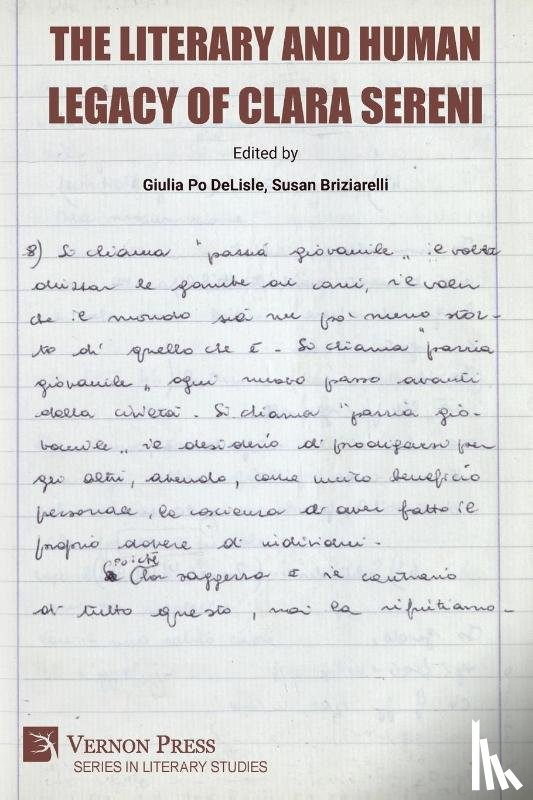 THE LITERARY AND HUMAN
LEGACY OF CLARA SERENI
Edited by
Giulia Po DeLisle, Susan Briziarelli
8) Si chiama "pazzia giovanile„ il voler
drizzar le gambe ai cani, il voler
che il mondo sia un po' meno stor-
to di quello che è - Si chiama "pazzia
giovanile„ ogni nuovo passo avanti
della civiltà. Si chiama "pazzia gio-
vanile„ il desiderio di prodigarsi per
gli altri, avendo, come unico beneficio
personale, la coscienza di aver fatto il
proprio dovere di individui.
poiché
la saggezza è il contrario
di tutto questo, noi la rifiutiamo.
VERNON PRESS
SERIES IN LITERARY STUDIES